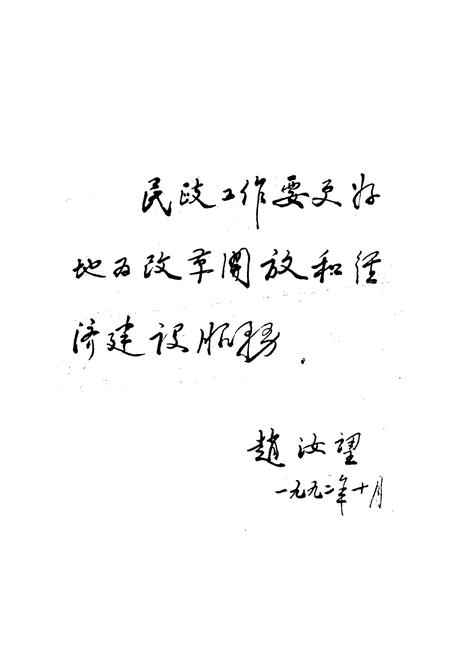 民政工作要更好
地为改革開放和经
济建设服務.
趙汝望
一九九二年十月